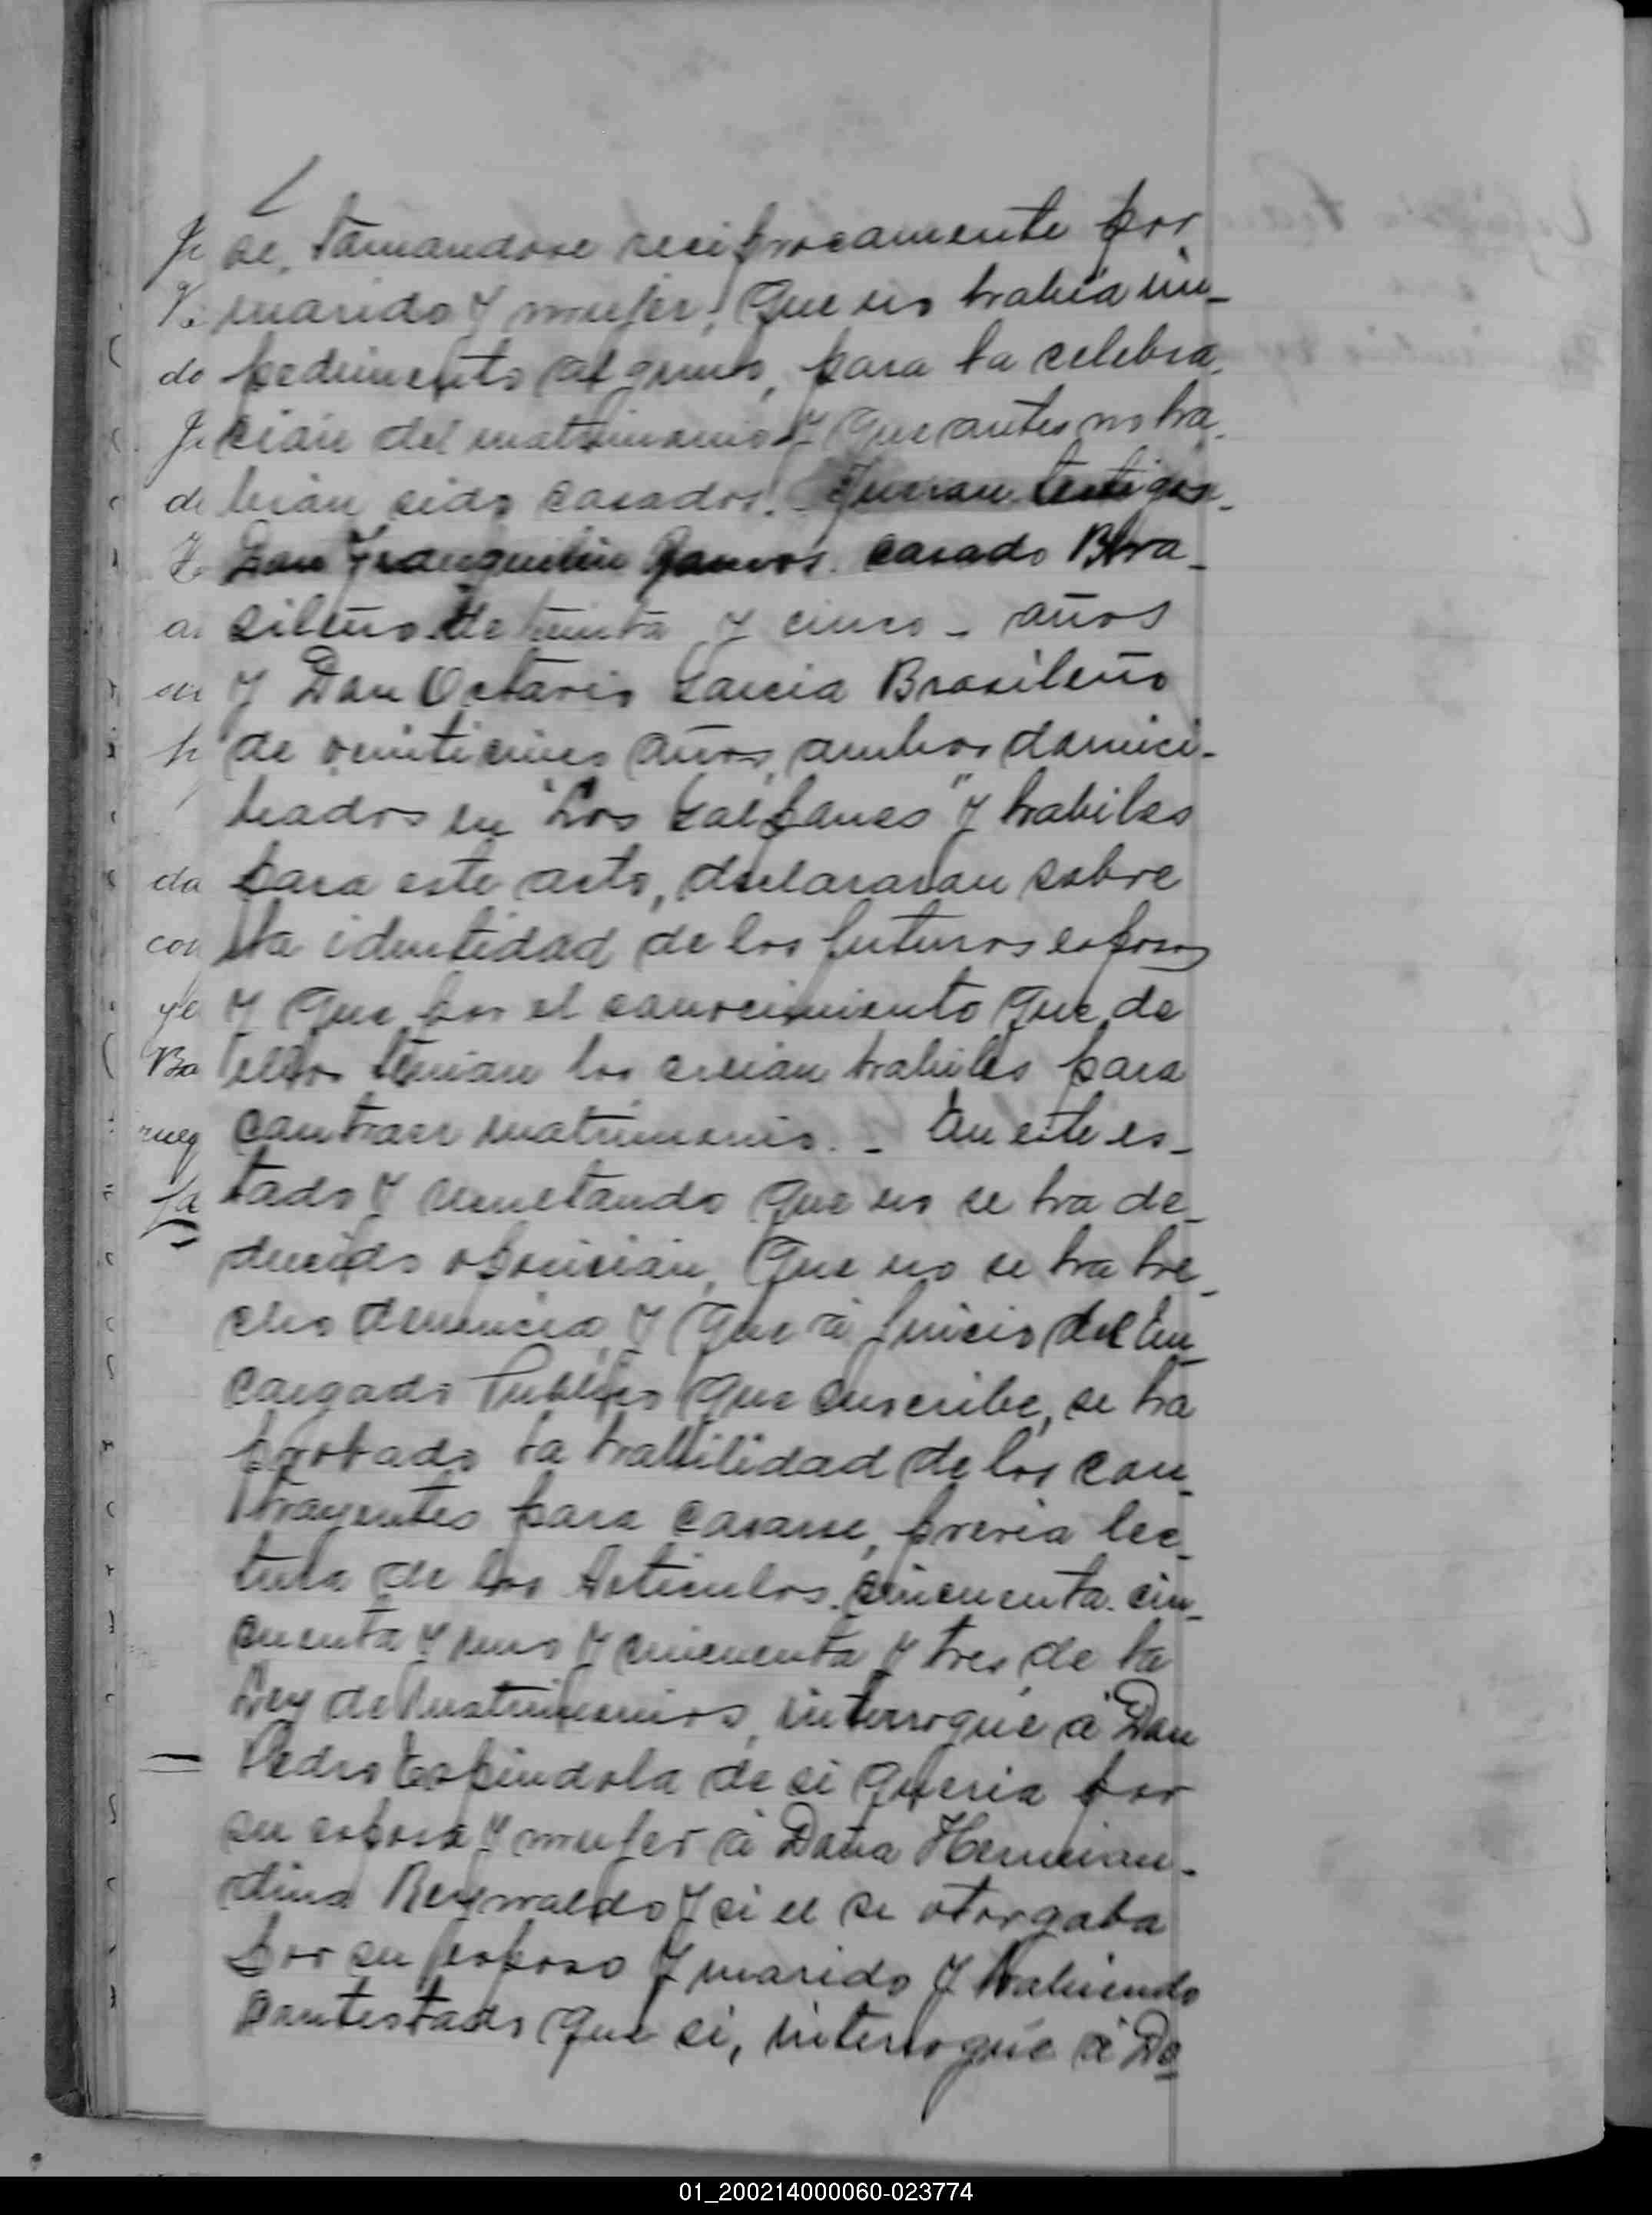 se, tomandose reciprocamente por
marido y mujer! Que no habia im-
pedimento alguno, para la celebra-
ción del matrimonio y que antes no ha-
bian sido casados. Fueron testigos-
Don Franquilin Ramos casado Bra-
sileño de treinta y cinco - años
y Don Octavio Garcia Brasileño
de veinticinco años, ambos domici-
liados en "Los Galpones" y habiles
para este acto, declararon sobre
la identidad de los futuros esposos
y que por el conocimiento que de
ellos tenian los creian habiles para
contraer matrimonio. - En este es-
tado y resultando que no se ha de-
ducido oposición, que no se ha he-
cho denuncia, y que á juicio del En-
cargado Publico que suscribe, se ha
probado la habilidad de los con-
trayentes para casarse, previa lec-
tura de los Articulos. cincuenta. cin-
cuenta y uno y cincuenta y tres de la
Ley de Matrimonios, interrogué á Don
Pedro Espindola de si queria por
su esposa y mujer á Doña
y si el se otorgaba
por su esposo y marido y habiendo
contestado que si, interrogué á Do
01_200214000060-023774